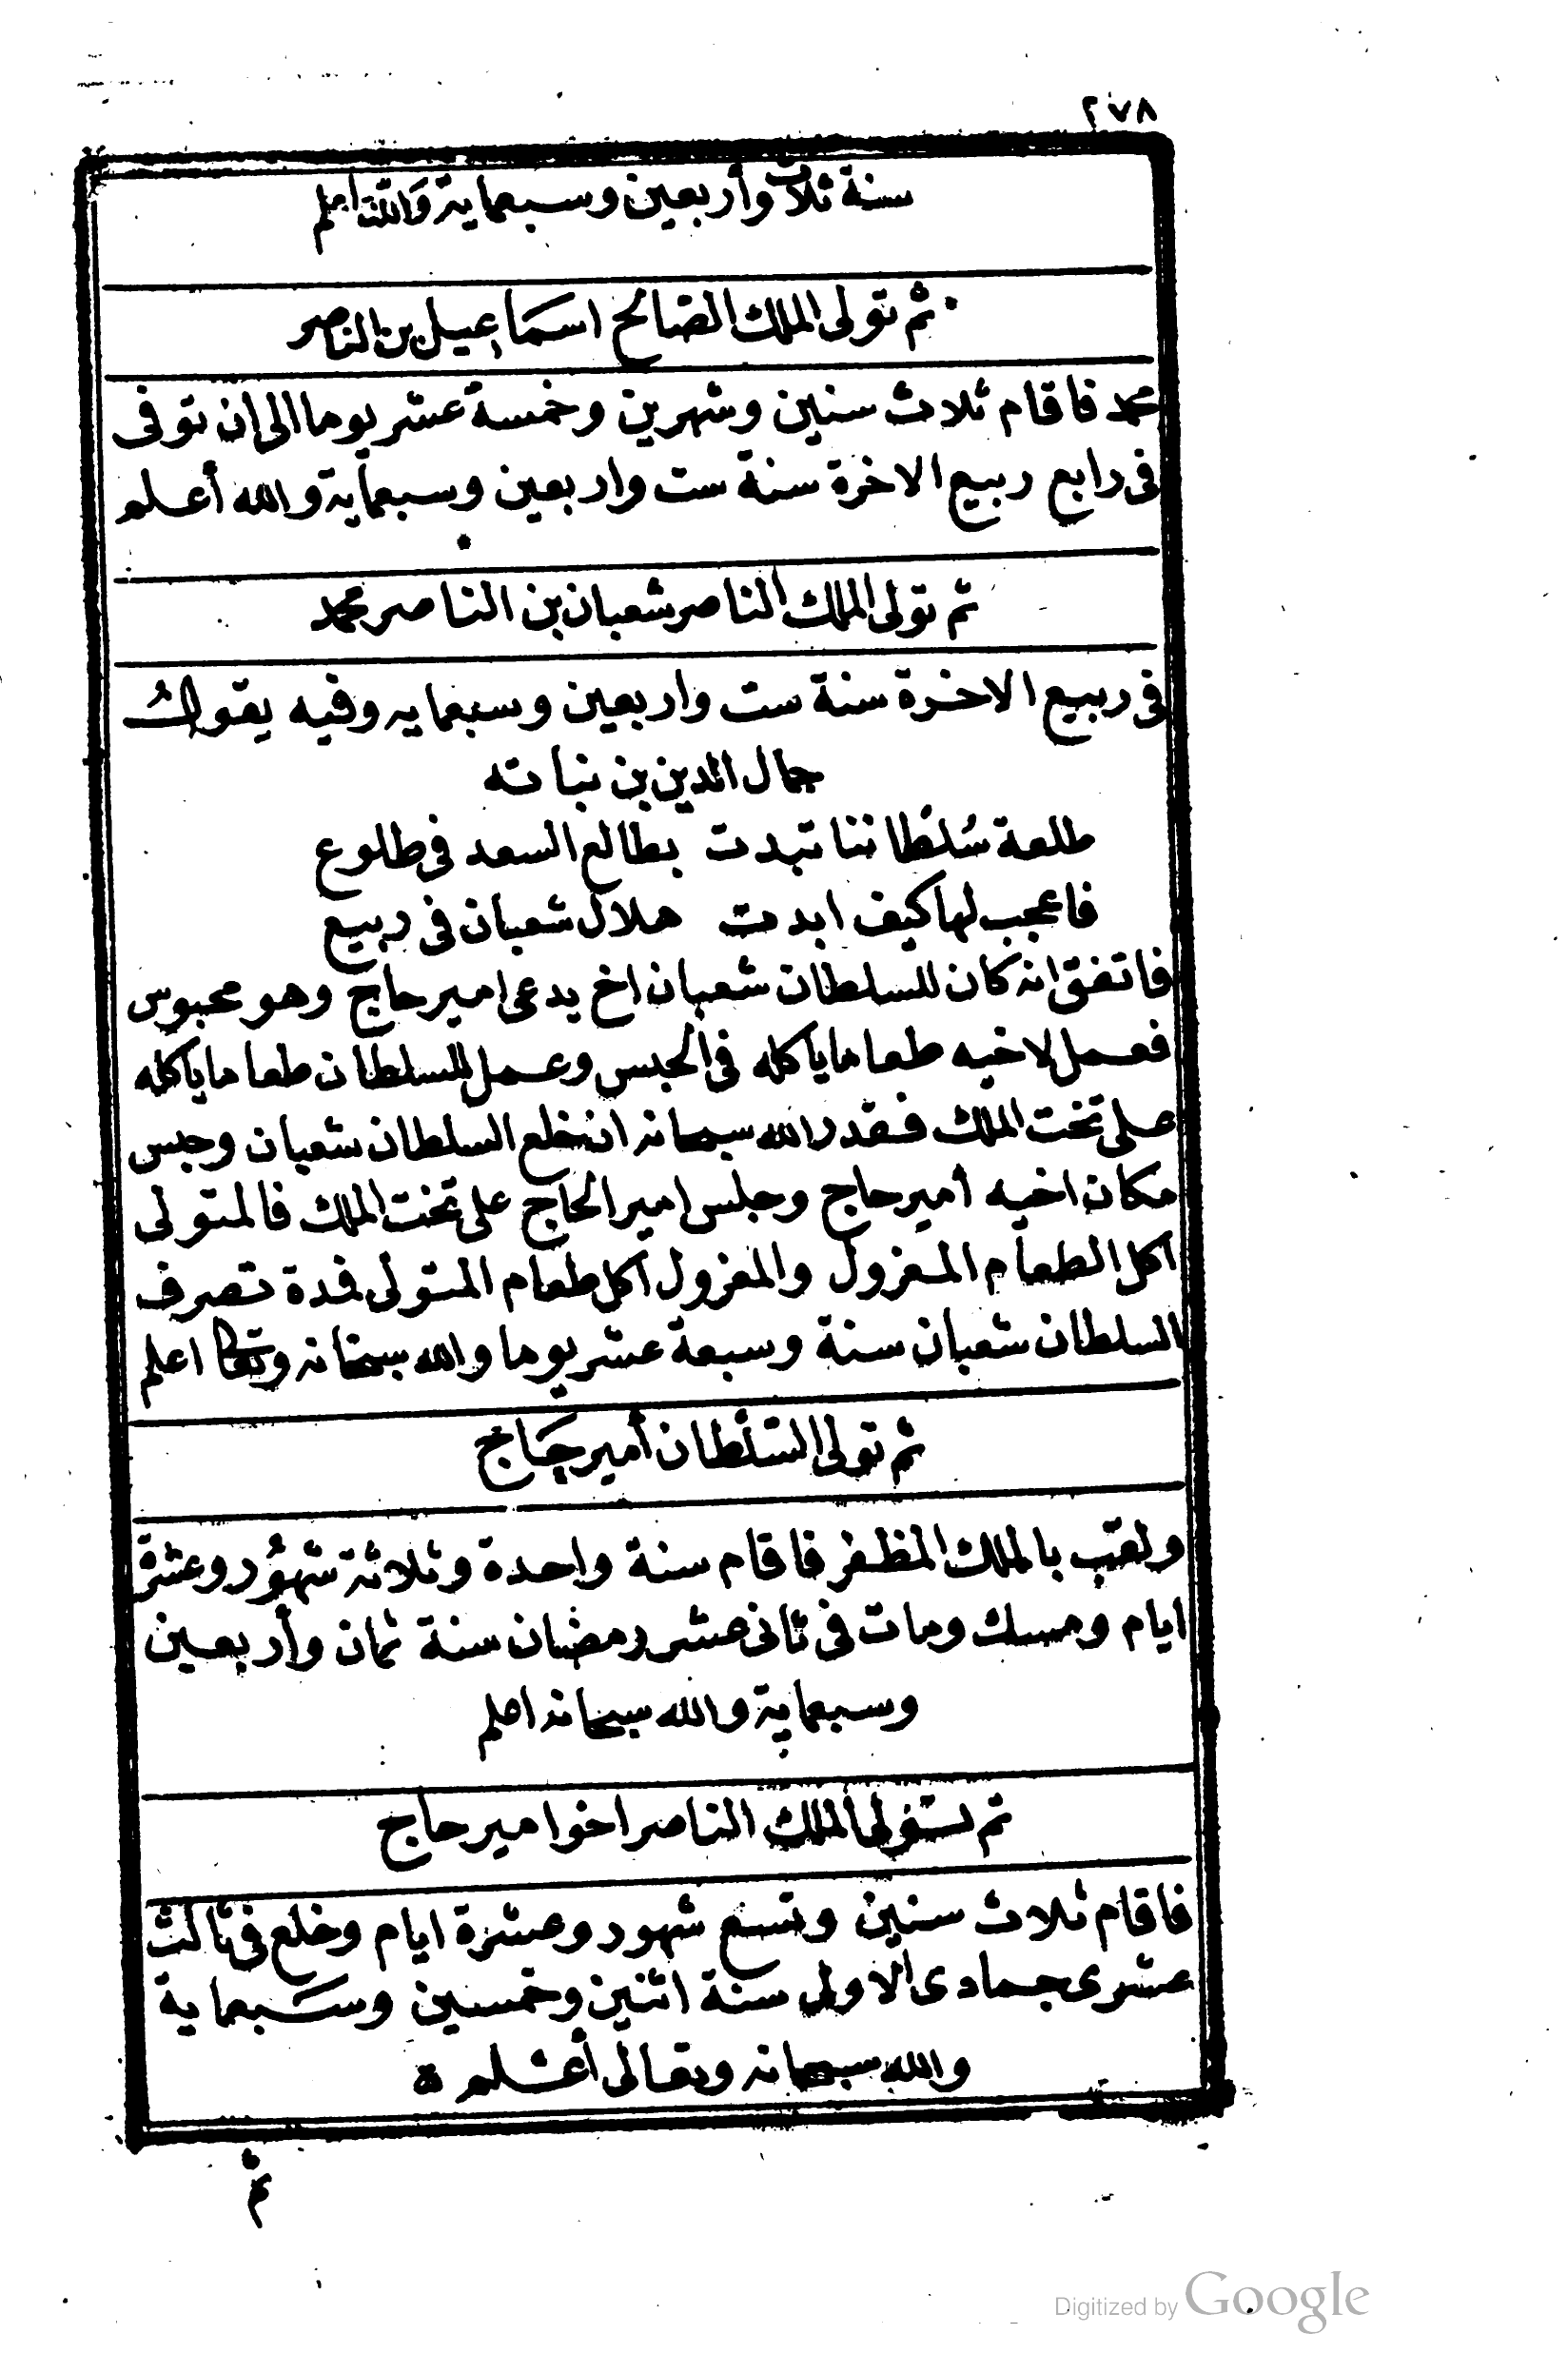 ٢٧٨
سنة ثلاث وأربعين وسبعماية والله اعلم
ثم تولى الملك الصالح اسماعيل بن الناصر
محمد فاقام ثلاث سنين وشهرين وخمسة عشر يوما الى ان توفى
فى رابع ربيع الاخرة سنة ست واربعين وسبعماية والله أعلم
ثم تولى الملك الناصر شعبان بن الناصر محمد
فى ربيع الاخرة سنة ست واربعين وسبعمايه وفيه يقول
جمال الدين بن نباته
طلعة سُلطاننا تبدت بطالع السعد فى طلوع
فاعجب لها كيف ابدت هلال شعبان فى ربيع
فاتفق انه كان للسلطان شعبان اخ يدعى امير حاج وهو محبوس
فعمل لاخيه طعاما ياكله فى الحبس وعمل للسلطان طعاما ياكله
على تخت الملك فقدر الله سبحانه ان خلع السلطان شعبان وحبس
مكان اخيه أمير حاج وجلس امير الحاج على تخت الملك فالمتولى
اكل الطعام المعزول والمعزول اكل طعام المتولى فمدة تصرف
السلطان شعبان سنة وسبعة عشر يوما والله سبحانه وتعالى اعلم
ثم تولى السلطان أمير حَاج
ولقب بالملك المظفر فاقام سنة واحدة وثلاثة شهُور وعشرة
ايام ومسك ومات فى ثانى عشر رمضان سنة ثمان وأربعين
وسبعماية والله سبحانه اعلم
ثم تولى الملك الناصر اخو امير حاج
فاقام ثلاث سنين وتسع شهور وعشرة ايام وخلع فى ثالث
عشرى جمادى الاولى سنة اثنين وخمسين وسَبعماية
والله سبحانه وتعالى أعلم ه
ثم
Digitized by Google